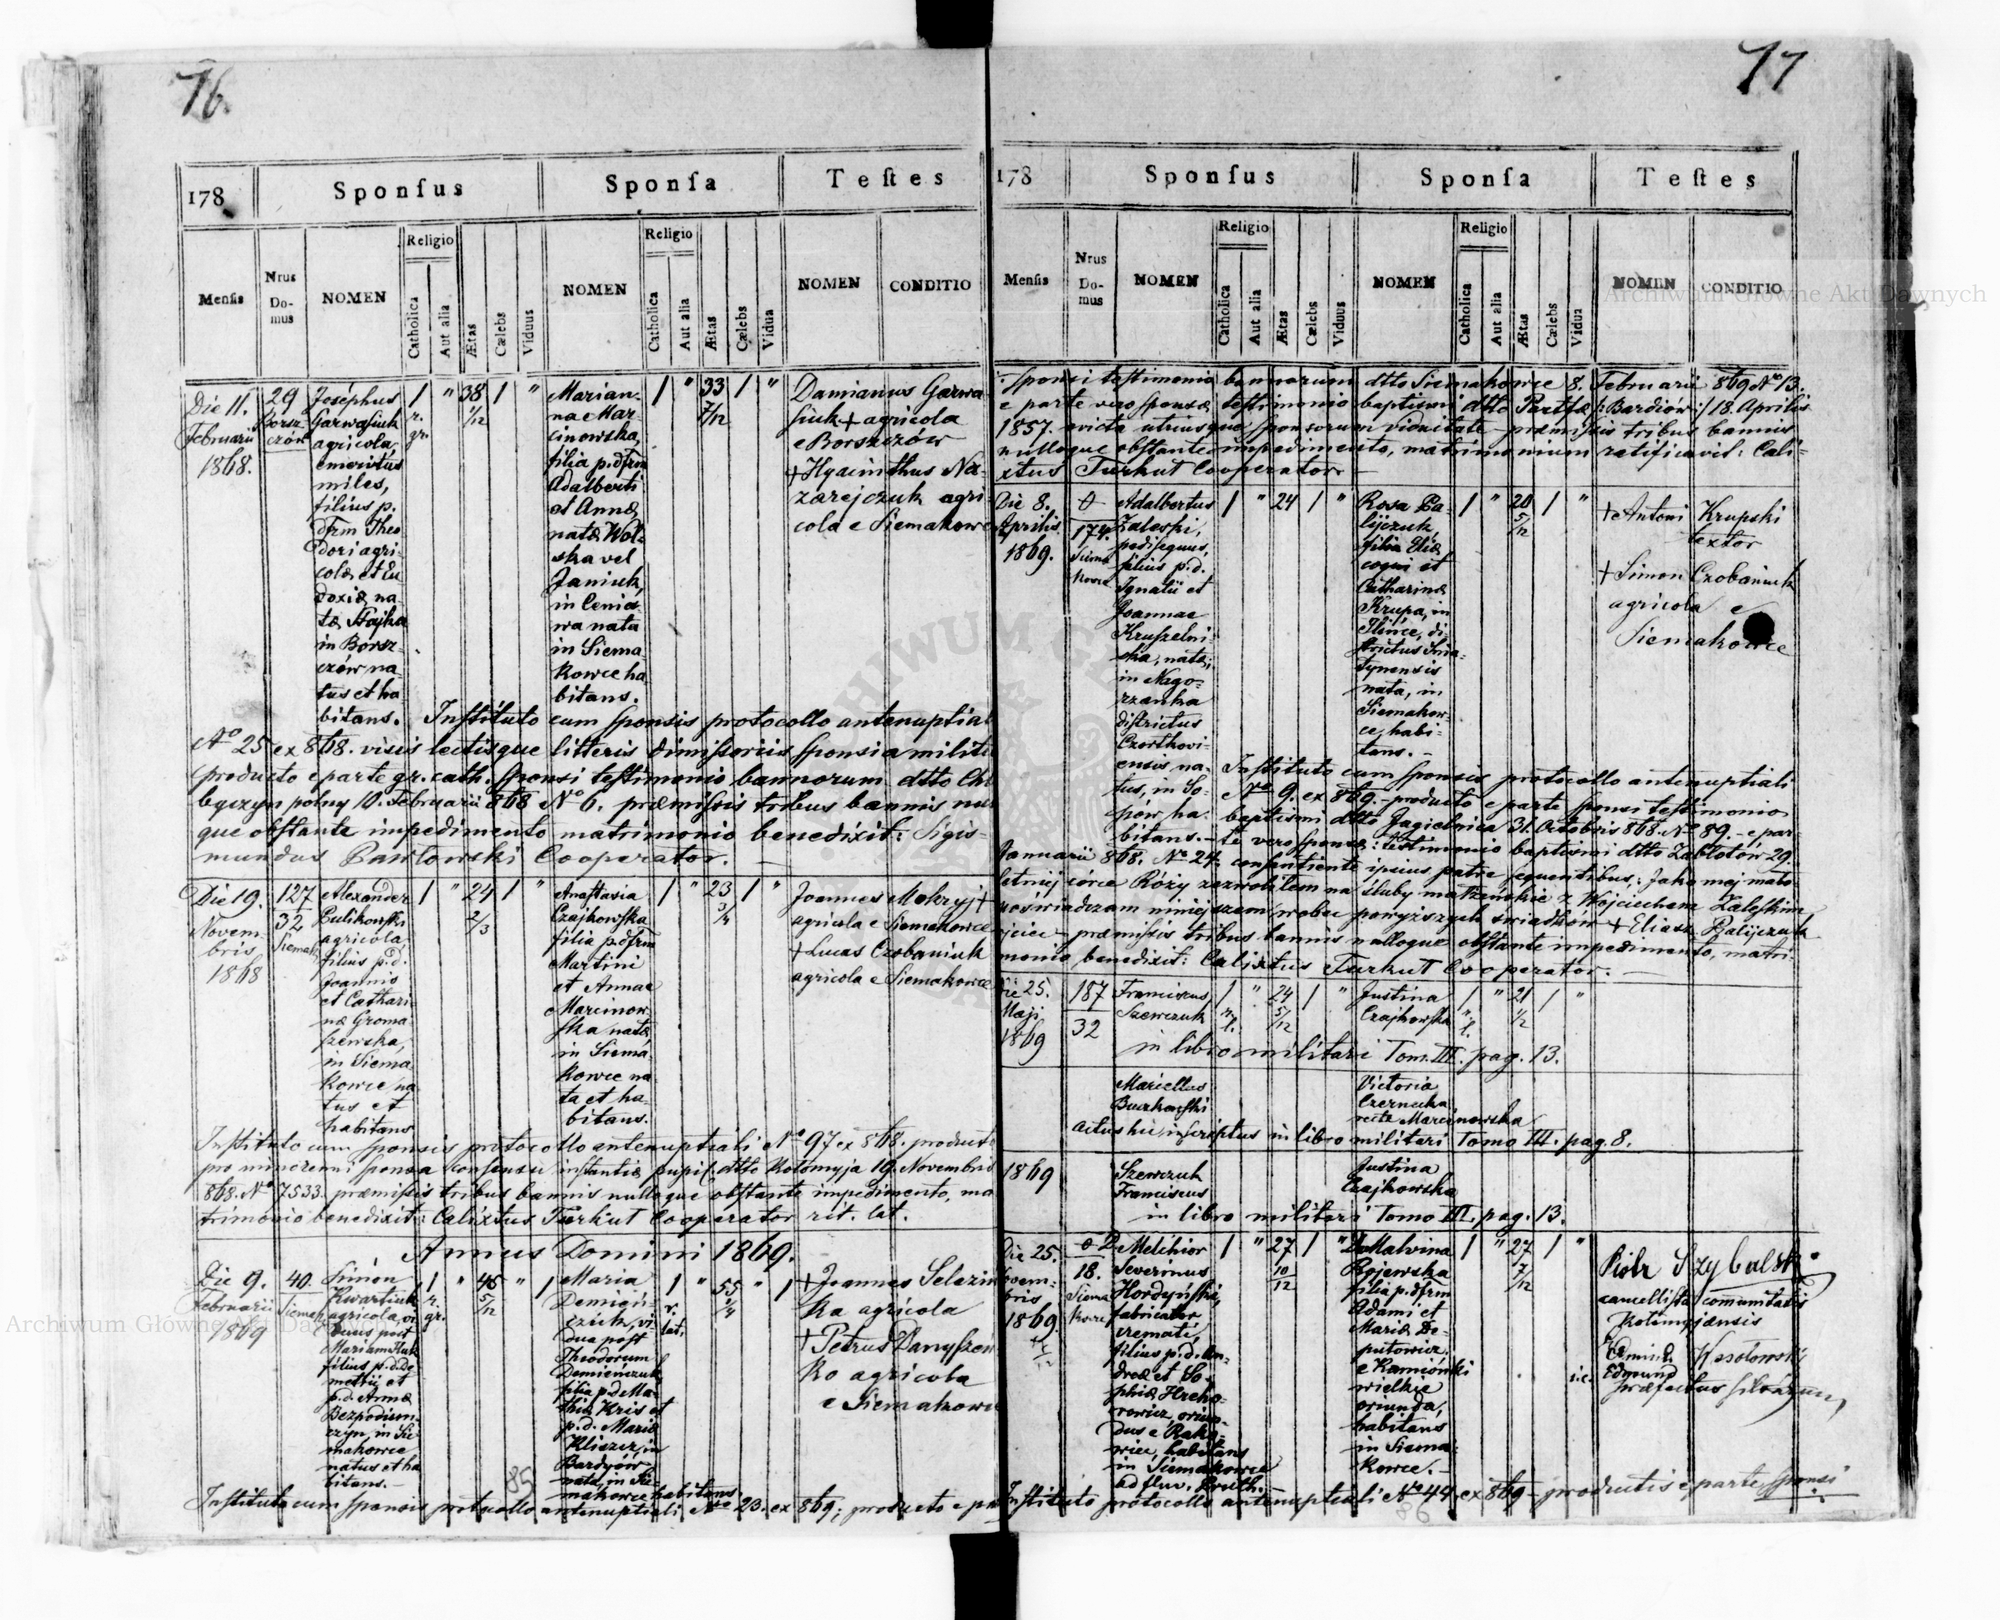 76.
178
Sponsus
Sponsa
Testes
Mensis
Nrus Domus
NOMEN
Religio
Catholica
Aut alia
Ætas
Cælebs
Viduus
NOMEN
Religio
Catholica
Aut alia
Ætas
Cælebs
Vidua
NOMEN
CONDITIO
Die 11.
Februarii
1868.
29
Borsz-
czów
Josephus
Garwasiuk
agricola,
emeritus
miles,
filius p.
dfm Theo
dori agri-
colæ et Eu
doxiæ na-
tæ Hajka
in Borsz-
czów na-
tus et ha
bitans.
1
r.
gr.
"
38
1/12
1
"
Marian-
na Mar
cinowska,
filia p. dfm
Adalberti
et Annæ
natæ Wol-
ska vel
Janiuk,
in Cenia-
wa nata
in Siema
kowce ha
bitans.
1
"
33
7/12
1
"
Damianus Garwa
siuk + agricola
e Borszczów
+ Hyacinthus Na-
zarejczuk agri-
cola e Siemakowc
Instituto cum sponsis protocollo antenuptial
No 25 ex 868. visis lectisque litteris dimissoriis sponsi a milit
producto e parte gr. cath. sponsi testimonio bannorum dtto Chl
byczyn polny 10. Februarii 868 No 6. præmissis tribus bannis nul
que obstante impedimento matrimonio benedixit: Sigis-
mundus Pawłowski Cooperator.
Die 19.
Novem-
bris
1868
127
32
Siemak.
Alexander
Pulikowski
agricola
filius p. d.
Joannis
et Cathari
næ Groma
szewska,
in Siema
kowce na
tus et
habitans
1
"
24
2/3
1
"
Anastasia
Czajkowska
filia p dfm
Martini
et Annae
Marcinow-
ska natæ
in Siema
kowce na
ta et ha-
bitans.
1
"
23
3/4
1
"
Joannes Mokryj +
agricola e Siemakowce
+ Lucas Czobaniuk
agricola e Siemakowce
Instituto cum sponsis protocollo antenuptiali No 97 ex 868. product
pro minorenni sponsa consensu instantiæ pupil. dtto Kołomyja 19. Novembris
868. No 7533. præmissis tribus bannis nulloque obstante impedimento, ma
trimonio benedixit: Calixtus Turkut Cooperator rit. lat.
Annus Domini 1869.
Die 9.
Februarii
1869
40.
Siemak.
Simon
Kwartiuk
agricola, vi
duus post
Mariam Huk
filius p. d. De
metrii et
p. d. Annæ
Bezpodium-
czyn, in Sie
makowce
natus et ha
bitans.
1
r.
gr.
"
45
5/12
"
1
Maria
Demień-
czuk, vi
dua post
Theodorum
Demieńczuk
filia p. d. Ma-
thiæ Kris et
p. d. Mariæ
Kliszcz, in
Bardyów
nata, in Sie
makowce habitans
1
r.
lat.
"
55
1/4
"
1
+ Joannes Selezin
ka agricola
+ Petrus Danyszew
ko agricola
e Siemakowce
Instituto cum sponsis protocollo antenuptiali No 23. ex 869; producto e par
85
77
178
Sponsus
Sponsa
Testes
Mensis
Nrus Domus
NOMEN
Religio
Catholica
Aut alia
Ætas
Cælebs
Viduus
NOMEN
Religio
Catholica
Aut alia
Ætas
Cælebs
Vidua
NOMEN
CONDITIO
sponsi testimonio bannorum dtto Siemakowce 8. Februarii 869 No 13.
e parte vero sponsæ testimonio baptismi dtto Partfa /: Bardiów :/ 18. Aprilis
1857. evicta utriusque sponsorum viduitate præmissis tribus bannis
nulloque obstante impedimento, matrimonium ratificavit: Cali-
xtus Turkut Cooperator.
Die 8.
Aprilis
1869.
0
174.
Siema
kowce
Adalbertus
Zaleski,
pedisequus,
filius p. d.
Ignatii et
Joannae
Kruszelni-
ska, natæ,
in Nago-
rzanka
districtus
Czortkovi-
ensis na-
tus, in So-
pów ha-
bitans.
1
"
24
1
"
Rosa Ba-
lijczuk
filia Eliæ
coqui et
Catharinæ
Krupa, in
Ilińce, di-
strictus Snia-
tynensis
nata, in
Siemakow-
ce, habi-
tans.
1
"
20
5/12
1
"
+ Antoni Krupski
textor
+ Simon Czobaniuk
agricola e
Siemakowce
Instituto cum sponsis protocollo antenuptiali
No 9. ex 869. producto e parte sponsi testimonio
baptismi dtto Jagielnica 31. Octobris 868. No 89. - e par-
te vero sponsæ: testimonio baptismi dtto Zabłotów 29.
Januarii 868. No 24. consentiente ipsius patre sequentibus: Jako mej mało
letniej córce Róży zezwoliłem na śluby małżeńskie z Wojciechem Zaleskim,
poświadczam niniejszem wobec powyższych świadków + Eliasz Balijczuk
ojciec præmissis tribus bannis nulloque obstante impedimento, matri-
monio benedixit: Calixtus Turkut Cooperator.
Die 25.
Maji
1869
187
32
Franciscus
Szewczuk
1
r.
l.
"
24
5/12
1
"
Justina
Czajkowska
1
r.
l.
"
21
1/2
1
"
in libro militari Tom. III. pag. 13.
Marcellus
Buczkowski
Victoria
Czernecka
recte Marcinowska
actus hic inscriptus in libro militari Tomo III. pag. 8.
1869
Szewczuk
Franciscus
Justina
Czajkowska
in libro militari Tomo III. pag. 13.
Die 25.
Novem-
bris
1869.
18.
Siema
kowce
Melchior
Severinus
Hordyński,
fabricator
cremati,
filius p. d. An-
dreæ et So-
phiæ Hreho-
rowicz, oriun-
dus e Rako-
wiec, habitans
in Siemakowce
ad fluv. Pruth.
1
"
27
10/12
1
"
Malvina
Rojewska
filia p. dfm
Adami et
Mariæ De-
putowicz
e Kamionki
wielkie
oriunda,
habitans
in Siema-
kowce.
1
"
27
7/12
1
"
Piotr Szybalski
cancellista communitatis
Kolomyjensis
Edmund Wesołowski
præfectus silvarum
Instituto protocollo antenuptiali No 44 ex 869 - productis e parte sponsi
86
Archiwum Główne Akt Dawnych
Archiwum Główne Akt Dawnych